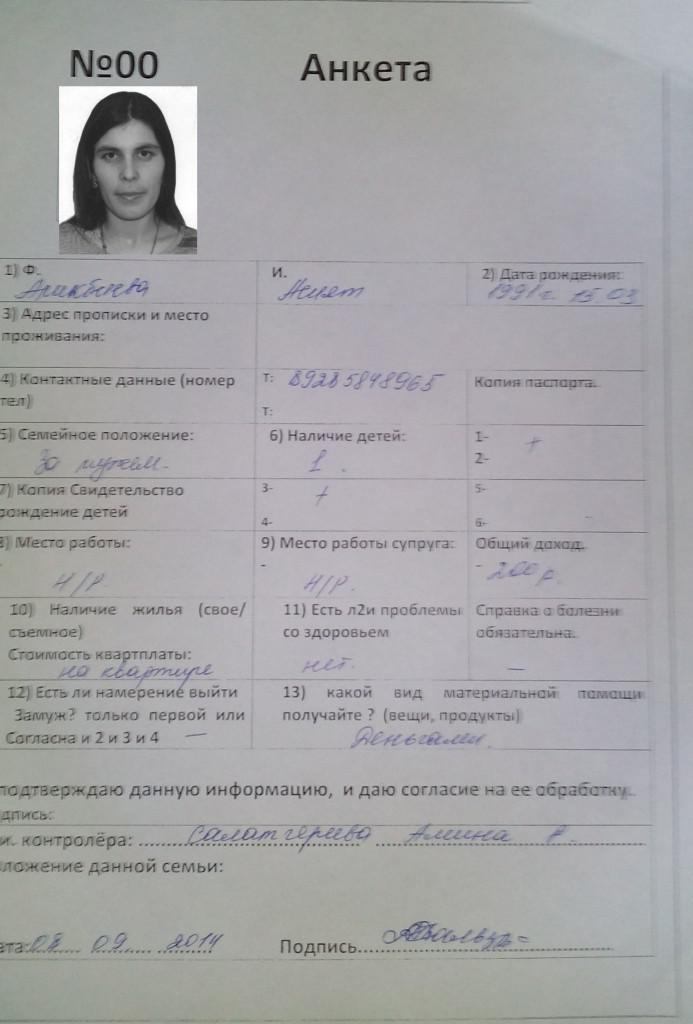 №00 Анкета
1) Ф. И. 2) Дата рождения:
Асият 1991 г. 15 03
3) Адрес прописки и место
проживания:
4) Контактные данные (номер Т: 89285848965 Копия паспорта.
тел) Т:
5) Семейное положение: 6) Наличие детей: 1- +
За мужем. 1. 2-
7) Копия Свидетельство 3- + 5-
рождение детей 4- 6-
) Место работы: 9) Место работы супруга: Общий доход.
- Н/Р. - Н/Р. - 200 р.
10) Наличие жилья (свое/ 11) Есть л2и проблемы Справка о болезни
съемное) со здоровьем обязательна.
Стоимость квартплаты: нет. —
на квартире
12) Есть ли намерение выйти 13) какой вид материальной помощи
Замуж? только первой или получайте ? (вещи, продукты)
Согласна и 2 и 3 и 4 — Деньгами.
подтверждаю данную информацию, и даю согласие на ее обработку.
дпись:
и. контролёра: Салатгериева Амина Р.
ложение данной семьи:
ата: 08 09 2014 Подпись